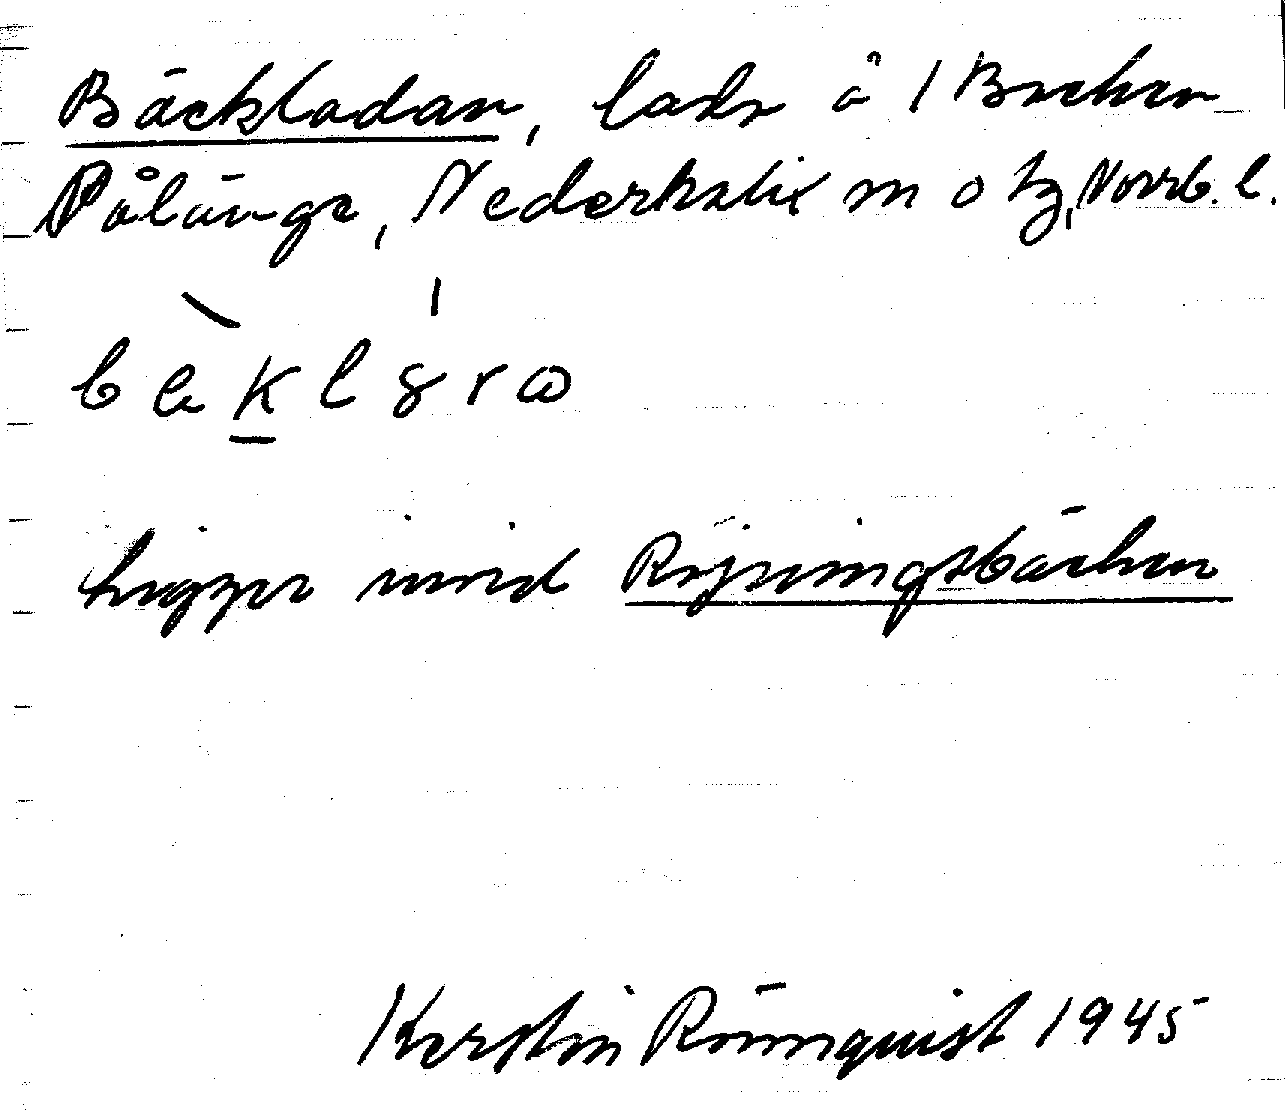 Bäckladan, lada å 1 Backen
Pålänge, Nederkalix sn o tg, Norrb. l.
Ligger invid Röjningsbäcken
Kerstin Rönnquist 1945